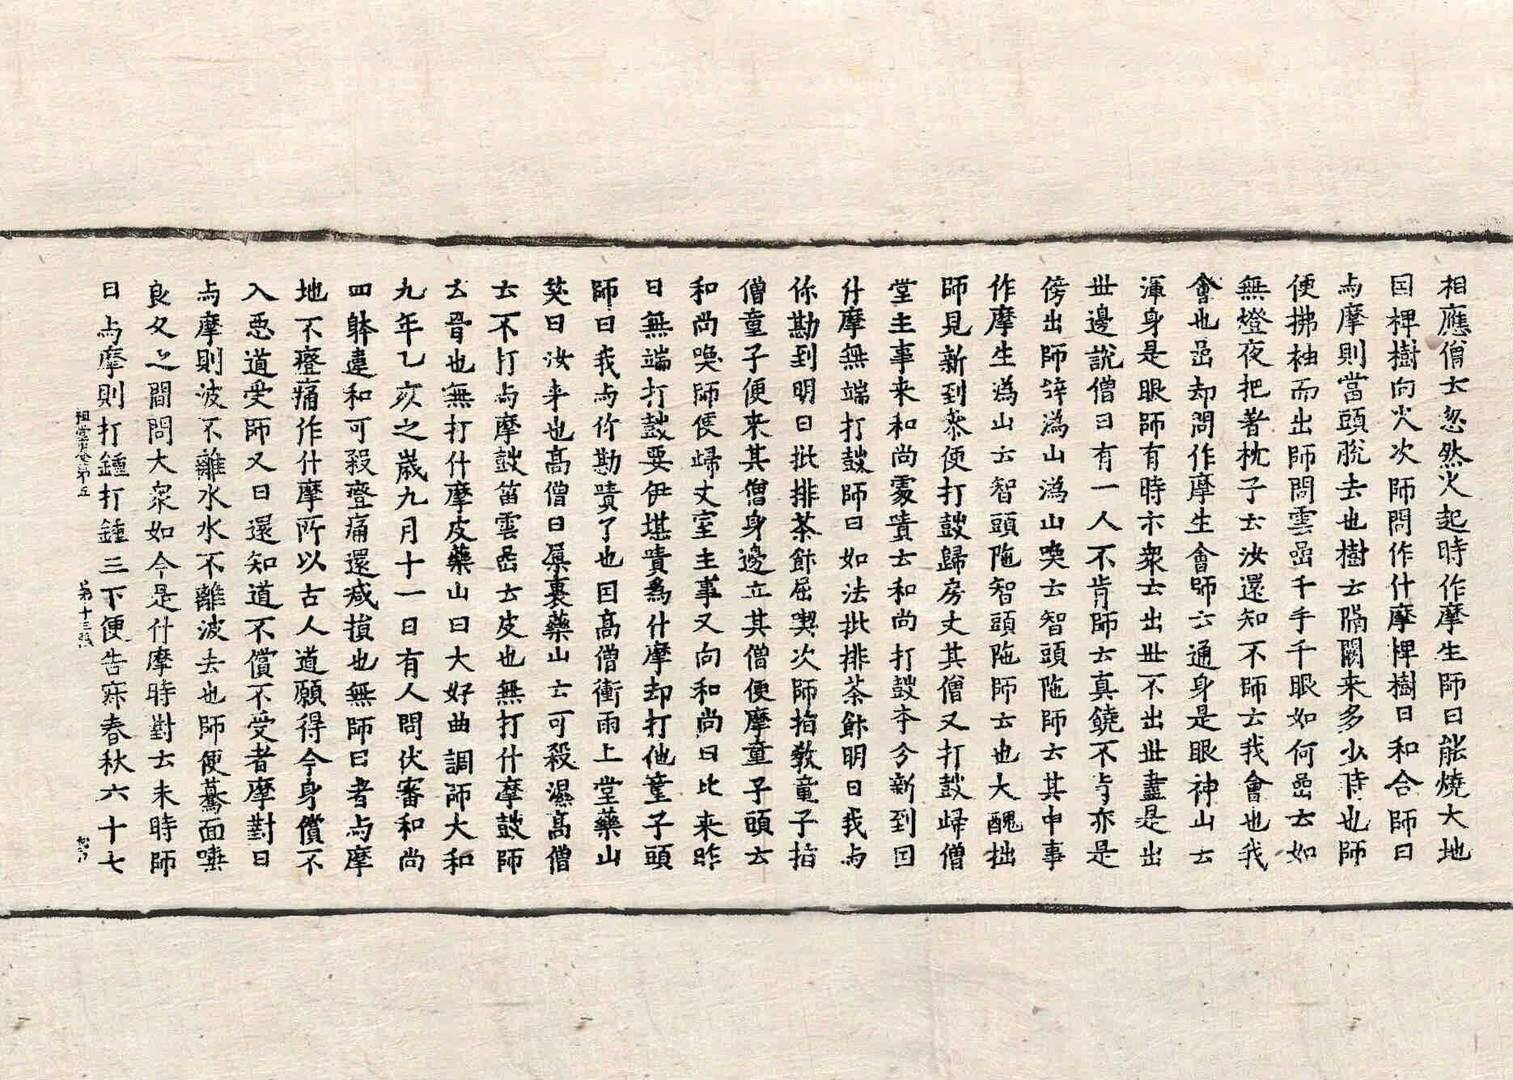 相應僧士忽然火起時作摩生師曰能燒大地
因椑樹向火次師問作什摩椑樹曰和合師曰
与摩則當頭脫去也樹云隔闊来多少時也師
便拂袖而出師問雲嵒千手千眼如何嵒云如
無燈夜把著枕子云汝還知不師云我會也我
會也嵒却問作摩生會師云通身是眼神山云
渾身是眼師有時示衆云出世不出世盡是出
世邊說僧曰有一人不肯師云真饒不肯亦是
傍出師辞溈山溈山喚云智頭陁師云其中事
作摩生溈山云智頭陁智頭陁師云也大醜拙
師見新到叅便打鼓歸房丈其僧又打鼓歸僧
堂主事来和尚處責云和尚打鼓本分新到因
什摩無端打鼓師曰如法批排茶飰明日我与
你勘到明日批排茶飰屈喫次師指教童子指
僧童子便来其僧身邊立其僧便摩童子頭云
和尚喚師便歸丈室主事又向和尚曰比来昨
日無端打鼓要伊堪責爲什摩却打他童子頭
師曰我与你勘責了也因高僧衝雨上堂藥山
笑曰汝来也高僧曰㞘裏藥山云可殺濕高僧
云不打与摩鼓笛雲嵒云皮也無打什摩鼓師
云骨也無打什摩皮藥山曰大好曲調師大和
九年乙亥之歲九月十一日有人問伏審和尚
四躰違和可殺㽅痛還减損也無師曰者与摩
地不㽅痛作什摩所以古人道願得今身償不
入惡道受師又曰還知道不償不受者摩對曰
与摩則波不離水水不離波去也師便驀面唾
良久之間問大衆如今是什摩時對云未時師
曰与摩則打鍾打鍾三下便告寂春秋六十七
祖堂卷第五
第十三張